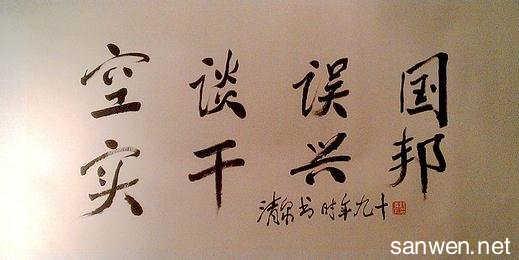 空谈误国
实干兴邦
清泉书 时年九十
sanwen.net